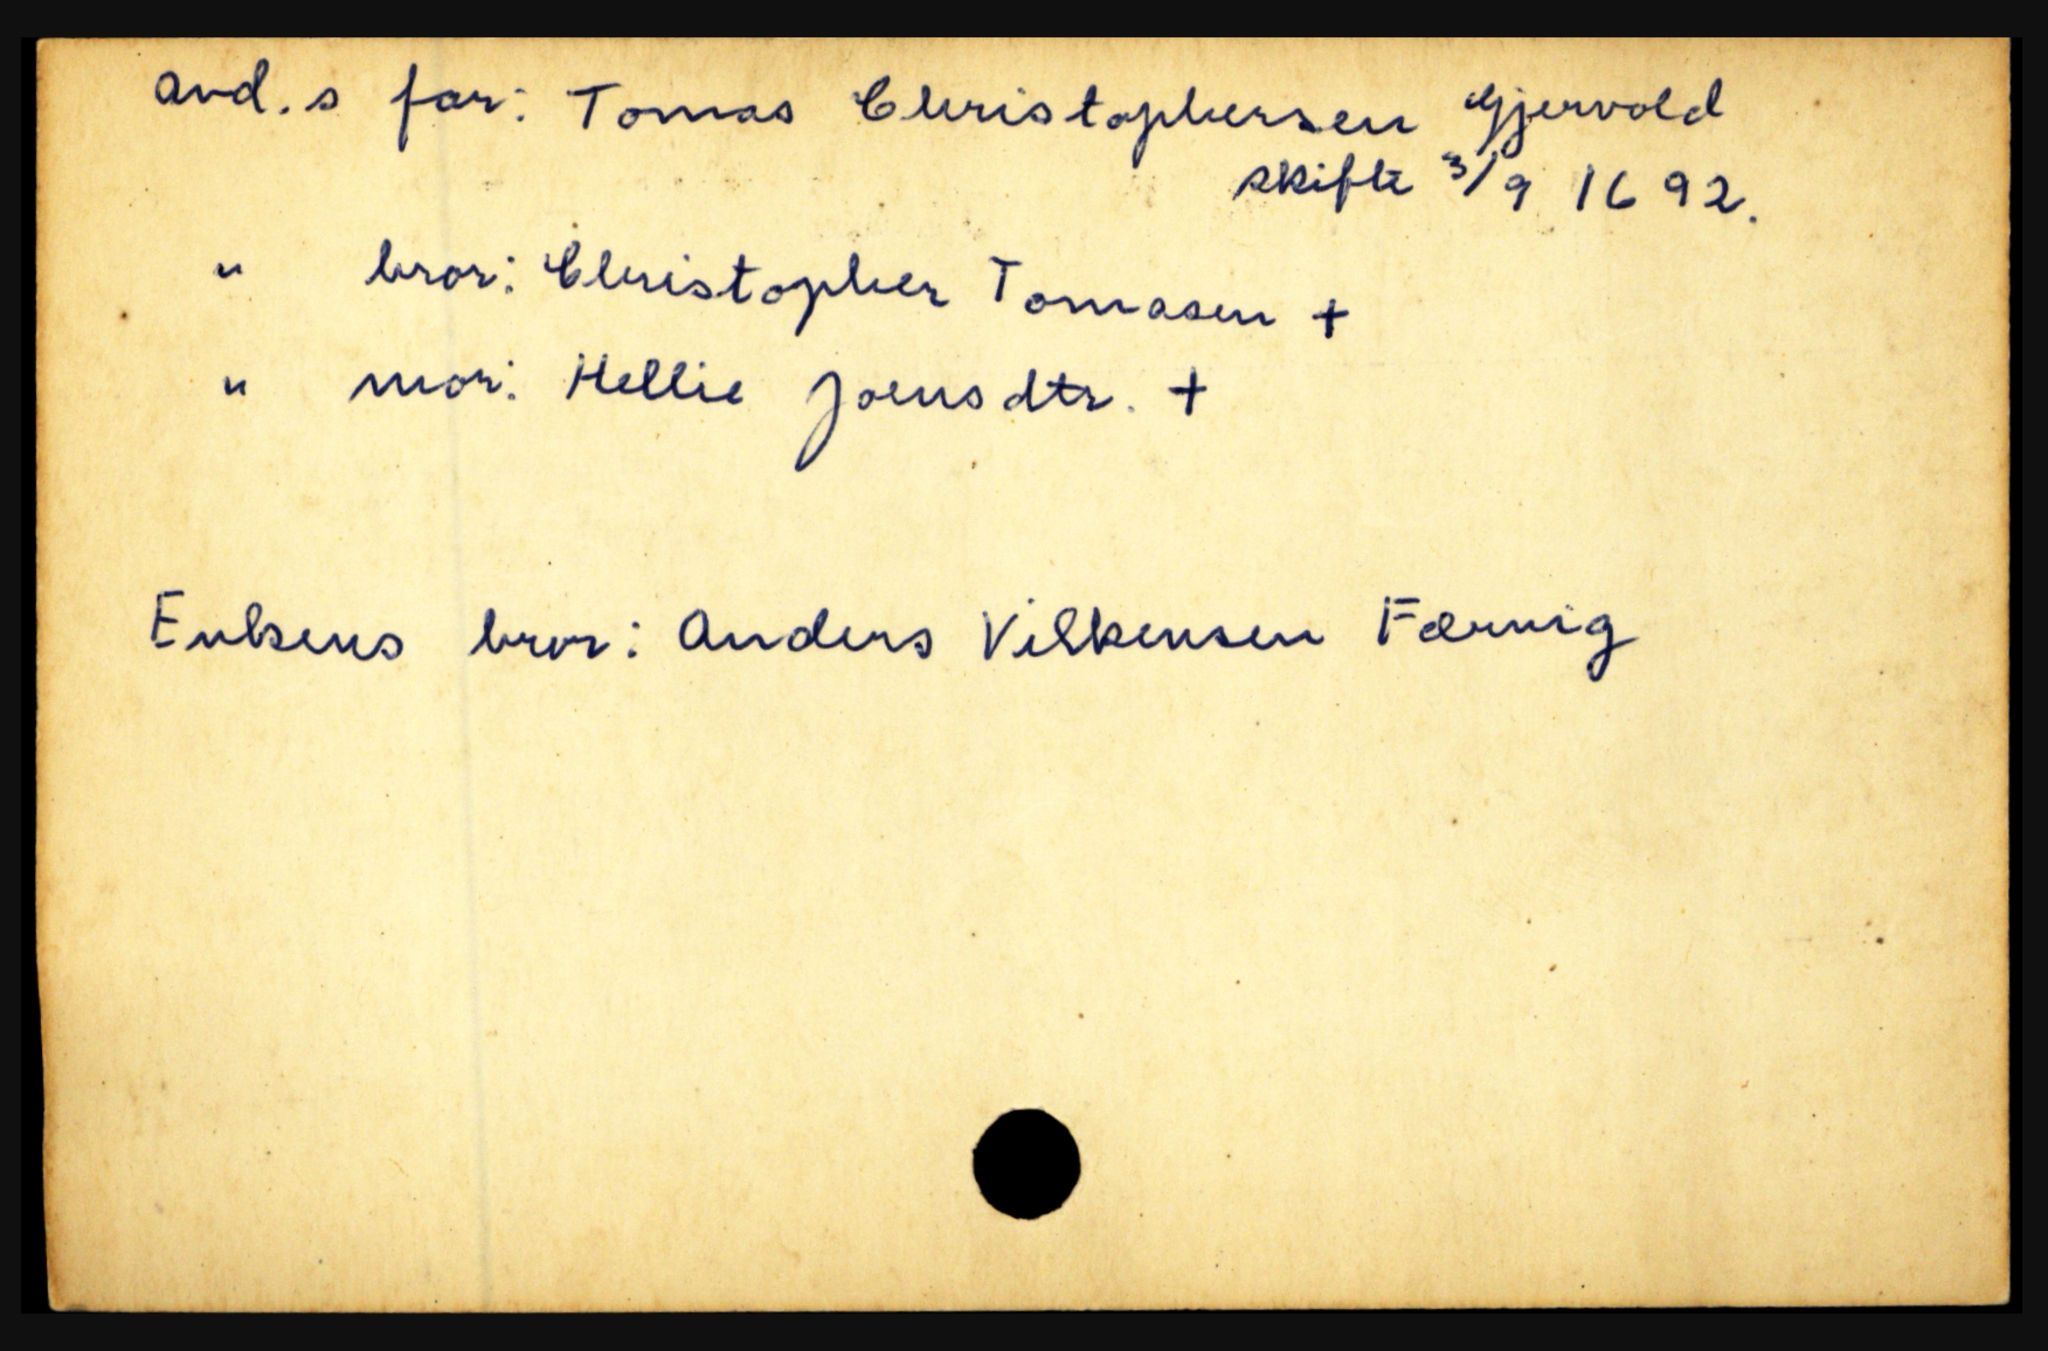 avd. s far: Tomas Christophersen Gjervold
skifte 3/9 1692.
" bror: Christopher Tomasen +
" mor: Hellie Joensdtr. +
Enkens bror: Anders Vilkensen Færvig